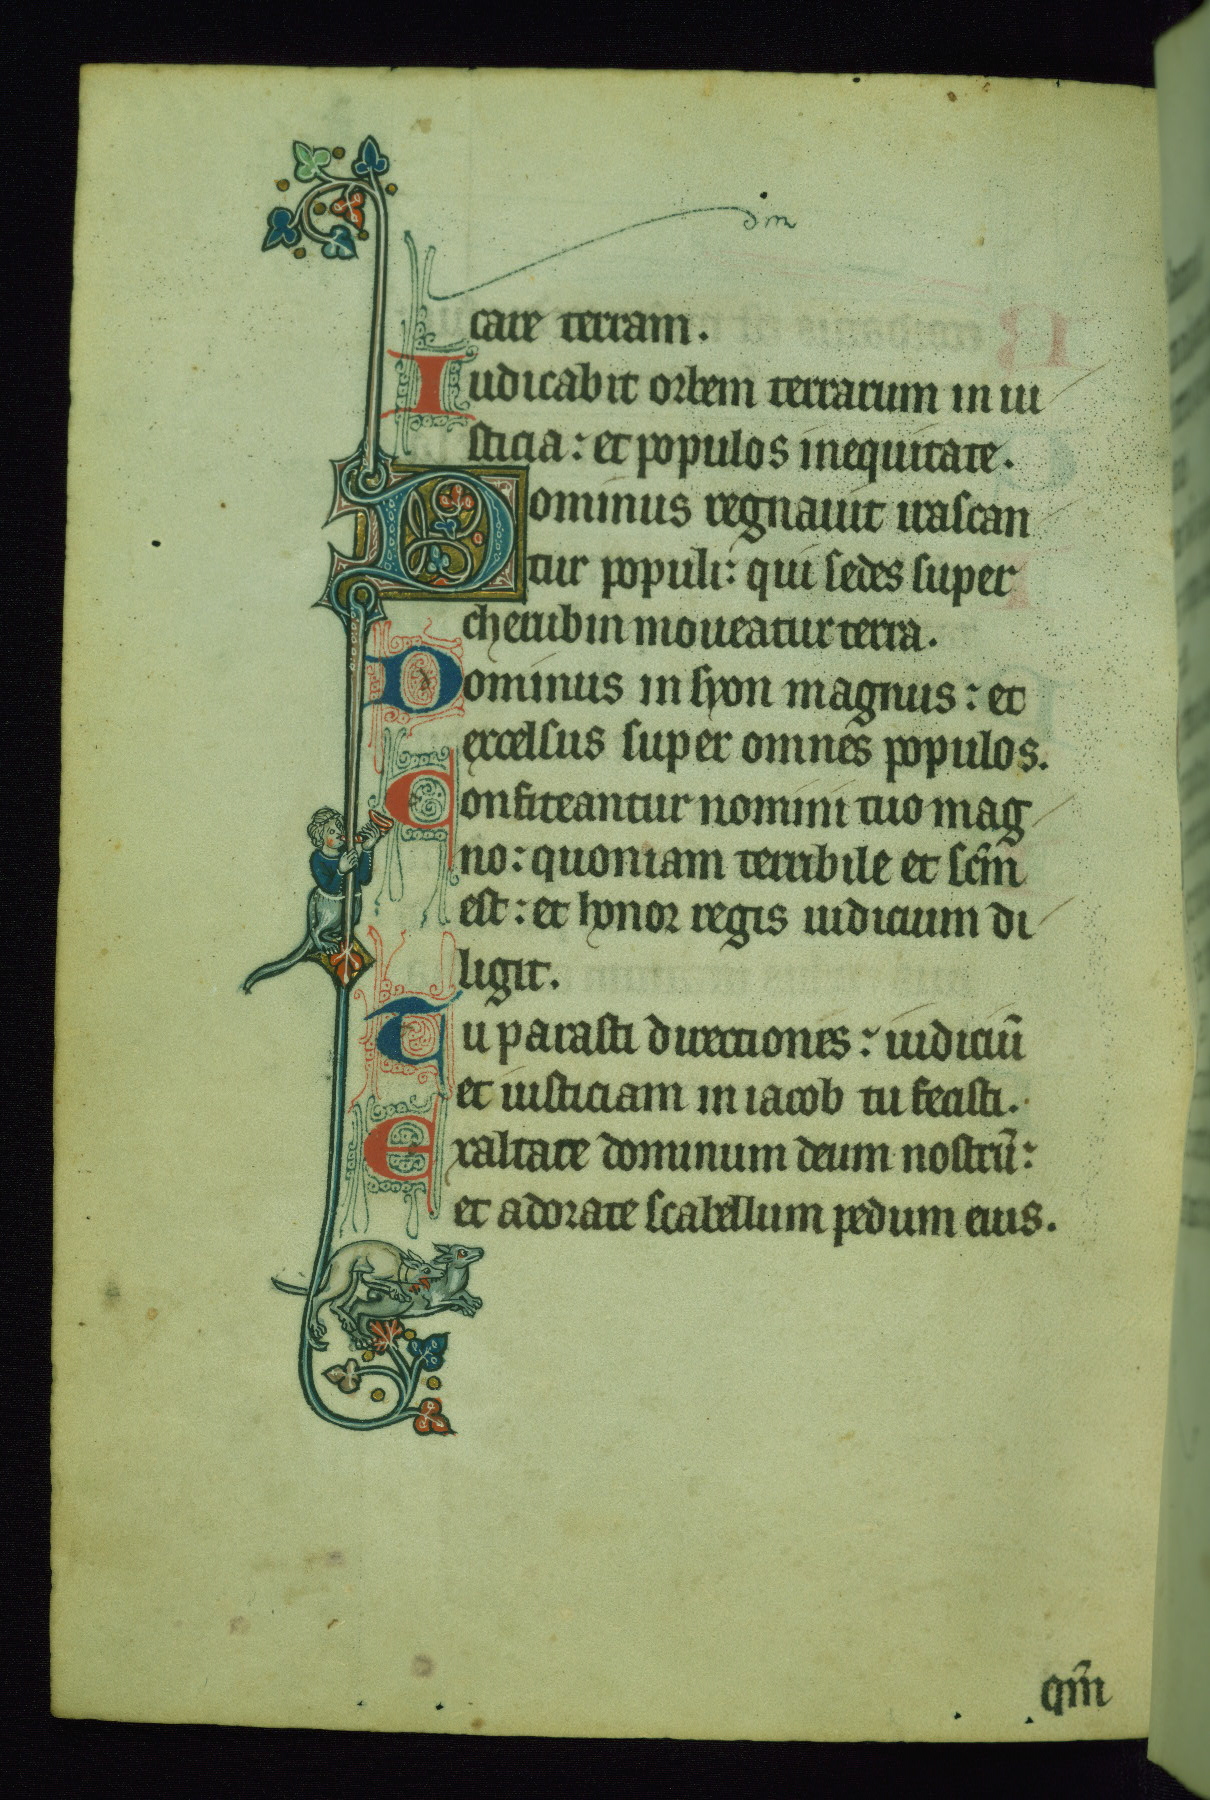 dm̄
care terram.
Iudicabit orbem terrarum in iu
sticia: et populos inequitate.
Dominus regnauit irascan
tur populi: qui sedes super
cherubin moueatur terra.
Dominus in syon magnus: et
excelsus super omnes populos.
Confiteantur nomini tuo mag
no: quoniam terribile et scm̄
est: et honor regis iudicium di
ligit.
Tu parasti directiones: iudiciū
et iusticiam in iacob tu fecisti.
Exaltate dominum deum nostrū:
et adorate scabellum pedum eius.
qm̄